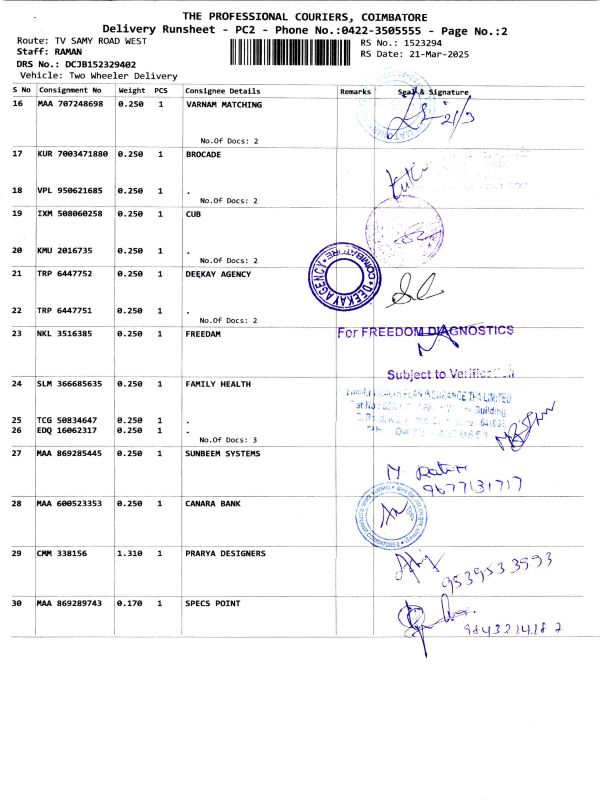 THE PROFESSIONAL COURIERS, COIMBATORE
Delivery Runsheet - PC2 - Phone No.:0422-3505555 - Page No.:2
Route: TV SAMY ROAD WEST
RS No.: 1523294
Staff: RAMAN
RS Date: 21-Mar-2025
DRS No.: DCJB152329402
Vehicle: Two Wheeler Delivery
S No Consignment No Weight PCS Consignee Details Remarks Seal & Signature
16 MAA 707248698 0.250 1 VARNAM MATCHING
21/3
No.Of Docs: 2
17 KUR 7003471880 0.250 1 BROCADE
18 VPL 950621685 0.250 1 .
No.Of Docs: 2
19 IXM 508060258 0.250 1 CUB
20 KMU 2016735 0.250 1 .
No.Of Docs: 2
21 TRP 6447752 0.250 1 DEEKAY AGENCY
DEEKAY AGENCY COIMBATORE
22 TRP 6447751 0.250 1 .
No.Of Docs: 2
23 NKL 3516385 0.250 1 FREEDAM
For FREEDOM DIAGNOSTICS
Subject to Verification
24 SLM 366685635 0.250 1 FAMILY HEALTH
INSURANCE TPA LIMITED
Building
25 TCG 50834647 0.250 1 .
26 EDQ 16062317 0.250 1 .
No.Of Docs: 3
27 MAA 869285445 0.250 1 SUNBEEM SYSTEMS
9677131717
28 MAA 600523353 0.250 1 CANARA BANK
29 CMM 338156 1.310 1 PRARYA DESIGNERS
9539533993
30 MAA 869289743 0.170 1 SPECS POINT
9843214182